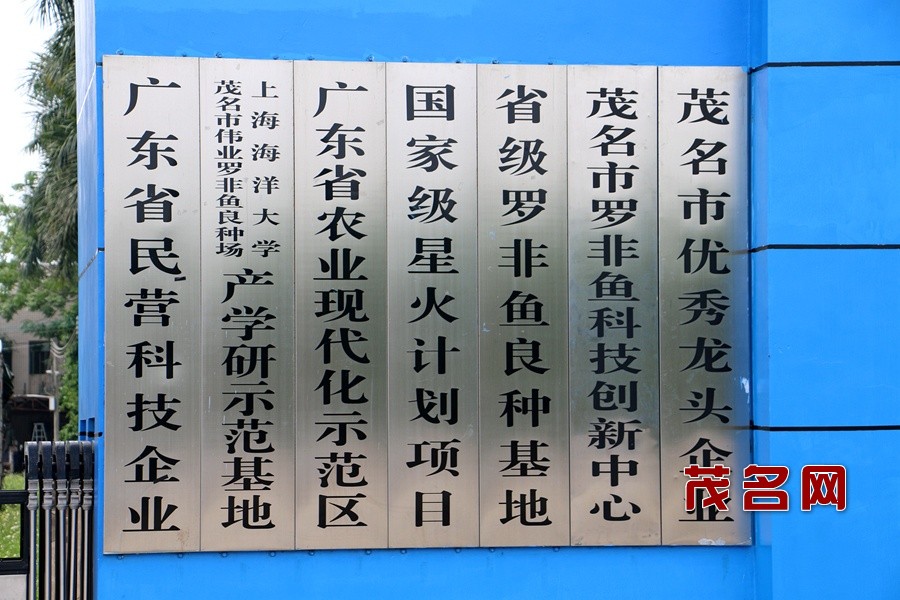 广东省民营科技企业
上海海洋大学
茂名市伟业罗非鱼良种场
产学研示范基地
广东省农业现代化示范区
国家级星火计划项目
省级罗非鱼良种基地
茂名市罗非鱼科技创新中心
茂名市优秀龙头企业
茂名网